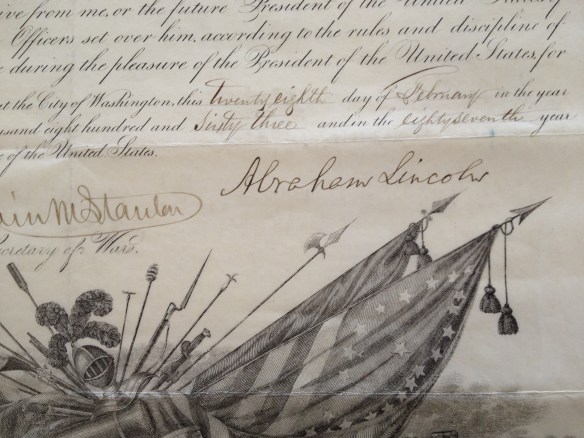 ive from me, or the future President of the United States,
Officers set over him, according to the rules and discipline of
during the pleasure of the President of the United States, for
at the City of Washington, this twenty eighth day of February in the year
ousand eight hundred and Sixty three and in the eighty seventh year
e of the United States.
Abraham Lincoln
win M Stanton
Secretary of War.